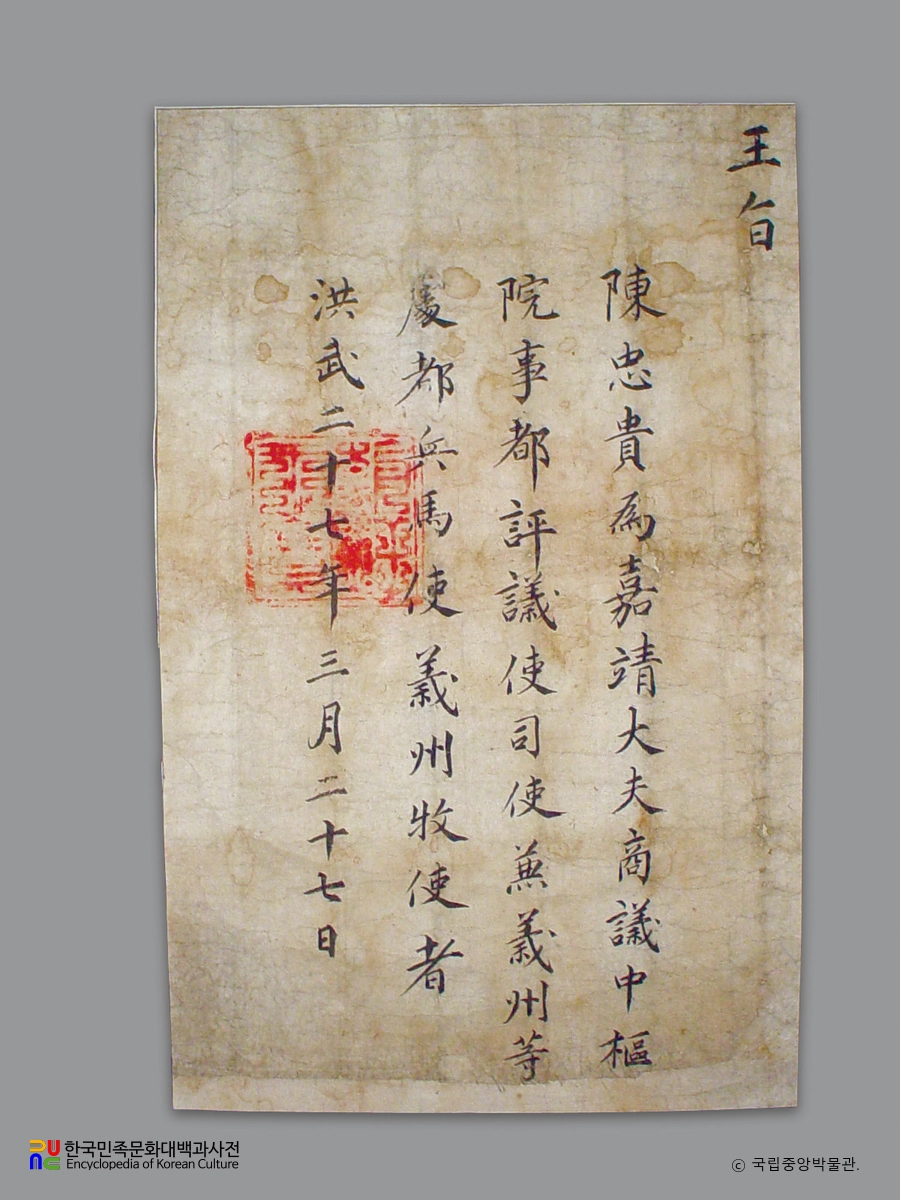 王旨
陳忠貴為嘉靖大夫商議中樞
院事都評議使司使兼義州等
處都兵馬使義州牧使者
洪武二十七年三月二十七日
한국민족문화대백과사전
Encyclopedia of Korean Culture
© 국립중앙박물관.